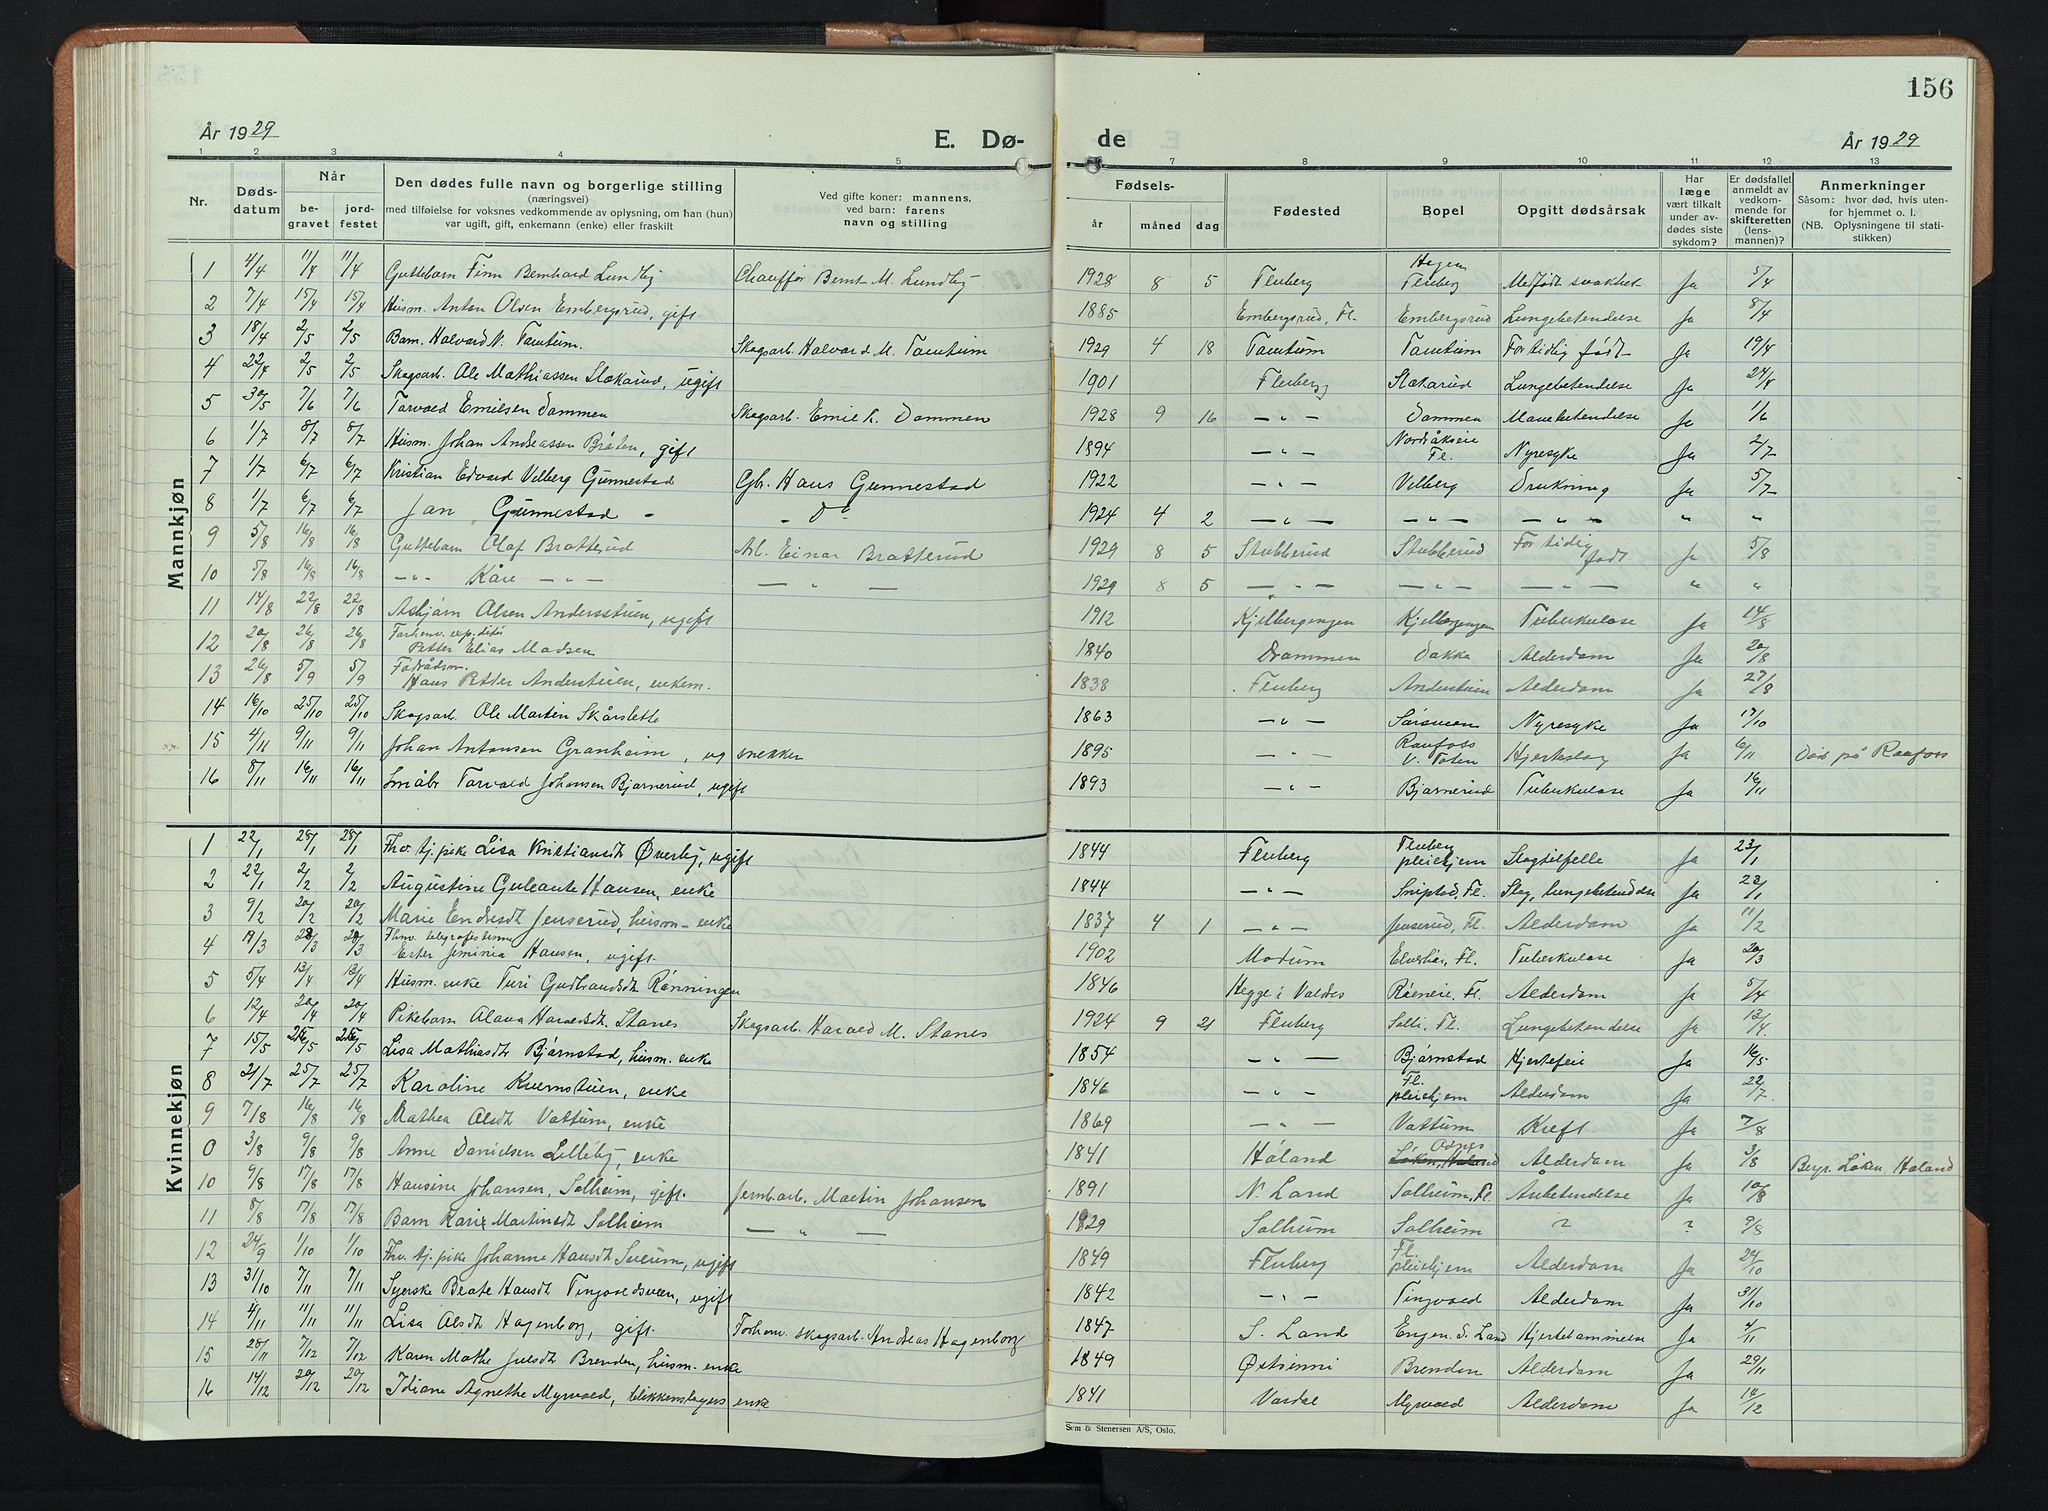 156
År 1929
E. Dø-
de
År 1929
1 2 3 4 5 7 8 9 10 11 12 13
Nr.
Døds-
datum
Når
be-
gravet
jord-
festet
Den dødes fulle navn og borgerlige stilling
(næringsvei)
med tilføielse for voksnes vedkommende av oplysning, om han (hun)
var ugift, gift, enkemann (enke) eller fraskilt
Ved gifte koner: mannens,
ved barn: farens
navn og stilling
Fødsels-
år måned dag
Fødested
Bopel
Opgitt dødsårsak
Har
læge
vært tilkalt
under av-
dødes siste
sykdom?
Er dødsfallet
anmeldt av
vedkom-
mende for
skifteretten
(lens-
mannen)?
Anmerkninger
Såsom: hvor død, hvis uten-
for hjemmet o. l.
(NB. Oplysningene til stati-
stikken)
Mannkjøn
1 4/4 11/4 11/4 Guttebarn Finn Bernhard Lundby Chauffør Bernt M. Lundby 1928 8 5 Fluberg Hegen Fluberg Medfødt svakhet Ja 5/4
2 7/4 15/4 15/4 Husm. Anton Olsen Embergsrud, gift 1885 Embergsrud, Fl. Embergsrud Lungebetendelse Ja 8/4
3 18/4 2/5 2/5 Barn Halvard N. Tømtum. Skogsarb. Halvard M. Tomtum 1929 4 18 Tomtum Tomtum For tidlig født Ja 19/4
4 22/4 2/5 2/5 Skogsarb. Ole Mathiassen Slokarud, ugift 1901 Fluberg Slokarud Lungebetendelse Ja 24/4
5 30/5 7/6 7/6 Torvald Emilsen Dammen Skogsarb. Emil L. Dammen 1928 9 16 — " — Dammen Mavebetendelse Ja 1/6
6 1/7 8/7 8/7 Husm. Johan Andreassen Bråten, gift 1894 — " — Nordråkseie Fl. Nyresyke Ja 2/7
7 1/7 6/7 6/7 Kristian Edvard Velberg Gunnestad Gbr. Hans Gunnestad 1922 — " — Velberg Drukning Ja 5/7
8 1/7 6/7 6/7 Jan Gunnestad - - do 1924 4 2 — " — — " — — " — " "
9 5/8 16/8 16/8 Guttebarn Olaf Bratterud Arb. Einar Bratterud 1929 8 5 Stubberud Stubberud For tidlig født Ja 5/8
10 5/8 16/8 16/8 — " — Kåre — " — — " — 1929 8 5 — " — — " — — " — " "
11 14/8 22/8 22/8 Asbjørn Olsen Andersstuen, ugift 1912 Kjelbergengen Kjelbergengen Tuberkulose Ja 14/8
12 20/8 26/8 26/8 Forhenv. expeditør Petter Elias Madsen 1840 Drammen Dokka Alderdom Ja 20/8
13 26/8 5/9 5/9 Fødrådsm. Hans Petter Anderstuen, enkem. 1838 Fluberg Anderstuen Alderdom Ja 27/8
14 16/10 25/10 25/10 Skogsarb. Ole Martin Skårslette 1863 — " — Sørsveen Nyresyke Ja 17/10
15 4/11 9/11 9/11 Johan Antonsen Granheim, ug snekker 1895 — " — Raufoss V. Toten Hjerteslag Ja 6/11 Død på Raufoss
16 8/11 16/11 16/11 Småbr. Torvald Johansen Bjørnerud, ugift 1893 — " — Bjørnerud Tuberkulose Ja 16/11
Kvinnekjøn
1 22/1 28/1 28/1 Fhv. tj.pike Lisa Kristiansdt Øverby, ugift 1844 Fluberg Fluberg pleiehjem Slagtilfelle Ja 23/1
2 22/1 2/2 2/2 Augustine Guleante Hansen, enke 1844 — " — Sniptad, Fl. Slag, lungebetendelse Ja 23/1
3 9/2 20/2 20/2 Marie Endresdt Jenserud, husm-enke 1837 4 1 — " — Jenserud, Fl. Alderdom Ja 11/2
4 17/3 28/3 28/3 Fhnv. telegrafistinne Ester Jiminia Hansen, ugift. 1902 Modum Elverhøi, Fl. Tuberkulose Ja 20/3
5 5/4 13/4 13/4 Husm. enke Turi Gudbrandsdt Rønningen 1846 Hegge i Valdres Røeneie, Fl. Alderdom Ja 5/4
6 12/4 20/4 20/4 Pikebarn Olava Haraldsdt. Stanes Skogsarb. Harald M. Stanes 1924 9 21 Fluberg Solli, Fl. Lungebetendelse Ja 13/4
7 15/5 /5 /5 Lisa Mathiasdt Bjørnstad, husm. enke 1854 — " — Bjørnstad Hjertefeil Ja 16/5
8 21/7 25/7 25/7 Karoline Kvernstuen, enke 1846 — " — Fl. pleiehjem Alderdom Ja 22/7
9 7/8 16/8 16/8 Mathea Olsdt Vattum, enke 1869 — " — Vattum Kreft Ja 7/8
0 3/8 9/8 9/8 Anne Danielsen Lilleby, enke 1841 Høland Odnes Løken, Høland Alderdom Ja 3/8 Begr. Løken, Høland
10 9/8 17/8 17/8 Hansine Johansen, Solheim, gift. Jernbarb. Martin Johansen 1891 N. Land Solheim, Fl. Ja 10/8
11 8/8 17/8 17/8 Barn Karie Martinsdt Solheim — " — 1929 Solheim Solheim ? ? 9/8
12 24/9 1/10 1/10 Fhv. tj. pike Johanne Hansdt Sveum, ugift 1849 Fluberg Fl. pleiehjem Alderdom Ja 24/10
13 31/10 7/11 7/11 Syerske Beate Hansdt Tingvoldsveen, ugift 1842 — " — Tingvold Alderdom Ja 31/10
14 4/11 11/11 11/11 Lisa Olsdt Hagenborg, gift. Forhenv. skogsarb. Andreas Hagenborg 1847 S. Land Engen. S. Land Hjertelammelse Ja 4/11
15 28/11 7/12 7/12 Karen Mathe Julsdt Brenden, husm. enke 1849 Østsinni Brenden Alderdom Ja 29/11
16 14/12 20/12 20/12 Idiane Agnethe Myrvold, blikkenslagers enke 1841 Vardal Myrvold Alderdom Ja 14/12
Sem & Stenersen A/S, Oslo.